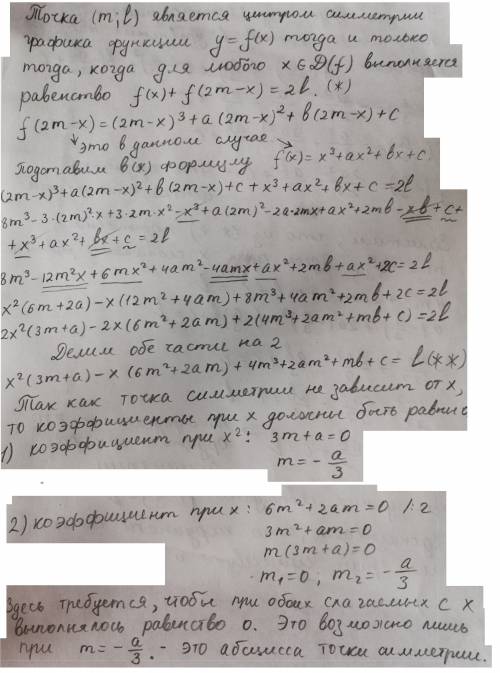 Точка (m; l) является центром симметрии
графика функции y = f(x) тогда и только
тогда, когда для любого x ∈ D(f) выполняется
равенство f(x) + f(2m-x) = 2l. (*)
f(2m-x) = (2m-x)³ + a(2m-x)² + b(2m-x) + c
это в данном случае
Подставим в(*) формулу f(x) = x³ + ax² + bx + c
(2m-x)³ + a(2m-x)² + b(2m-x) + c + x³ + ax² + bx + c = 2l
8m³ - 3·(2m)²·x + 3·2m·x² - x³ + a(2m)² - 2a·2mx + ax² + 2mb - xb + c +
+ x³ + ax² + bx + c = 2l
8m³ - 12m²x + 6mx² + 4am² - 4amx + ax² + 2mb + ax² + 2c = 2l
x²(6m+2a) - x(12m²+4am) + 8m³ + 4am² + 2mb + 2c = 2l
2x²(3m+a) - 2x(6m²+2am) + 2(4m³+2am²+mb+c) = 2l
Делим обе части на 2
x²(3m+a) - x(6m²+2am) + 4m³ + 2am² + mb + c = l (**)
Так как точка симметрии не зависит от x,
то коэффициенты при x должны быть равны 0
1) коэффициент при x²: 3m + a = 0
m = - a/3
2) коэффициент при x: 6m² + 2am = 0 /:2
3m² + am = 0
m(3m+a) = 0
m₁ = 0; m₂ = - a/3
Здесь требуется, чтобы при обоих слагаемых с x
выполнялось равенство 0. Это возможно лишь
при m = - a/3. - это абсцисса точки симметрии.